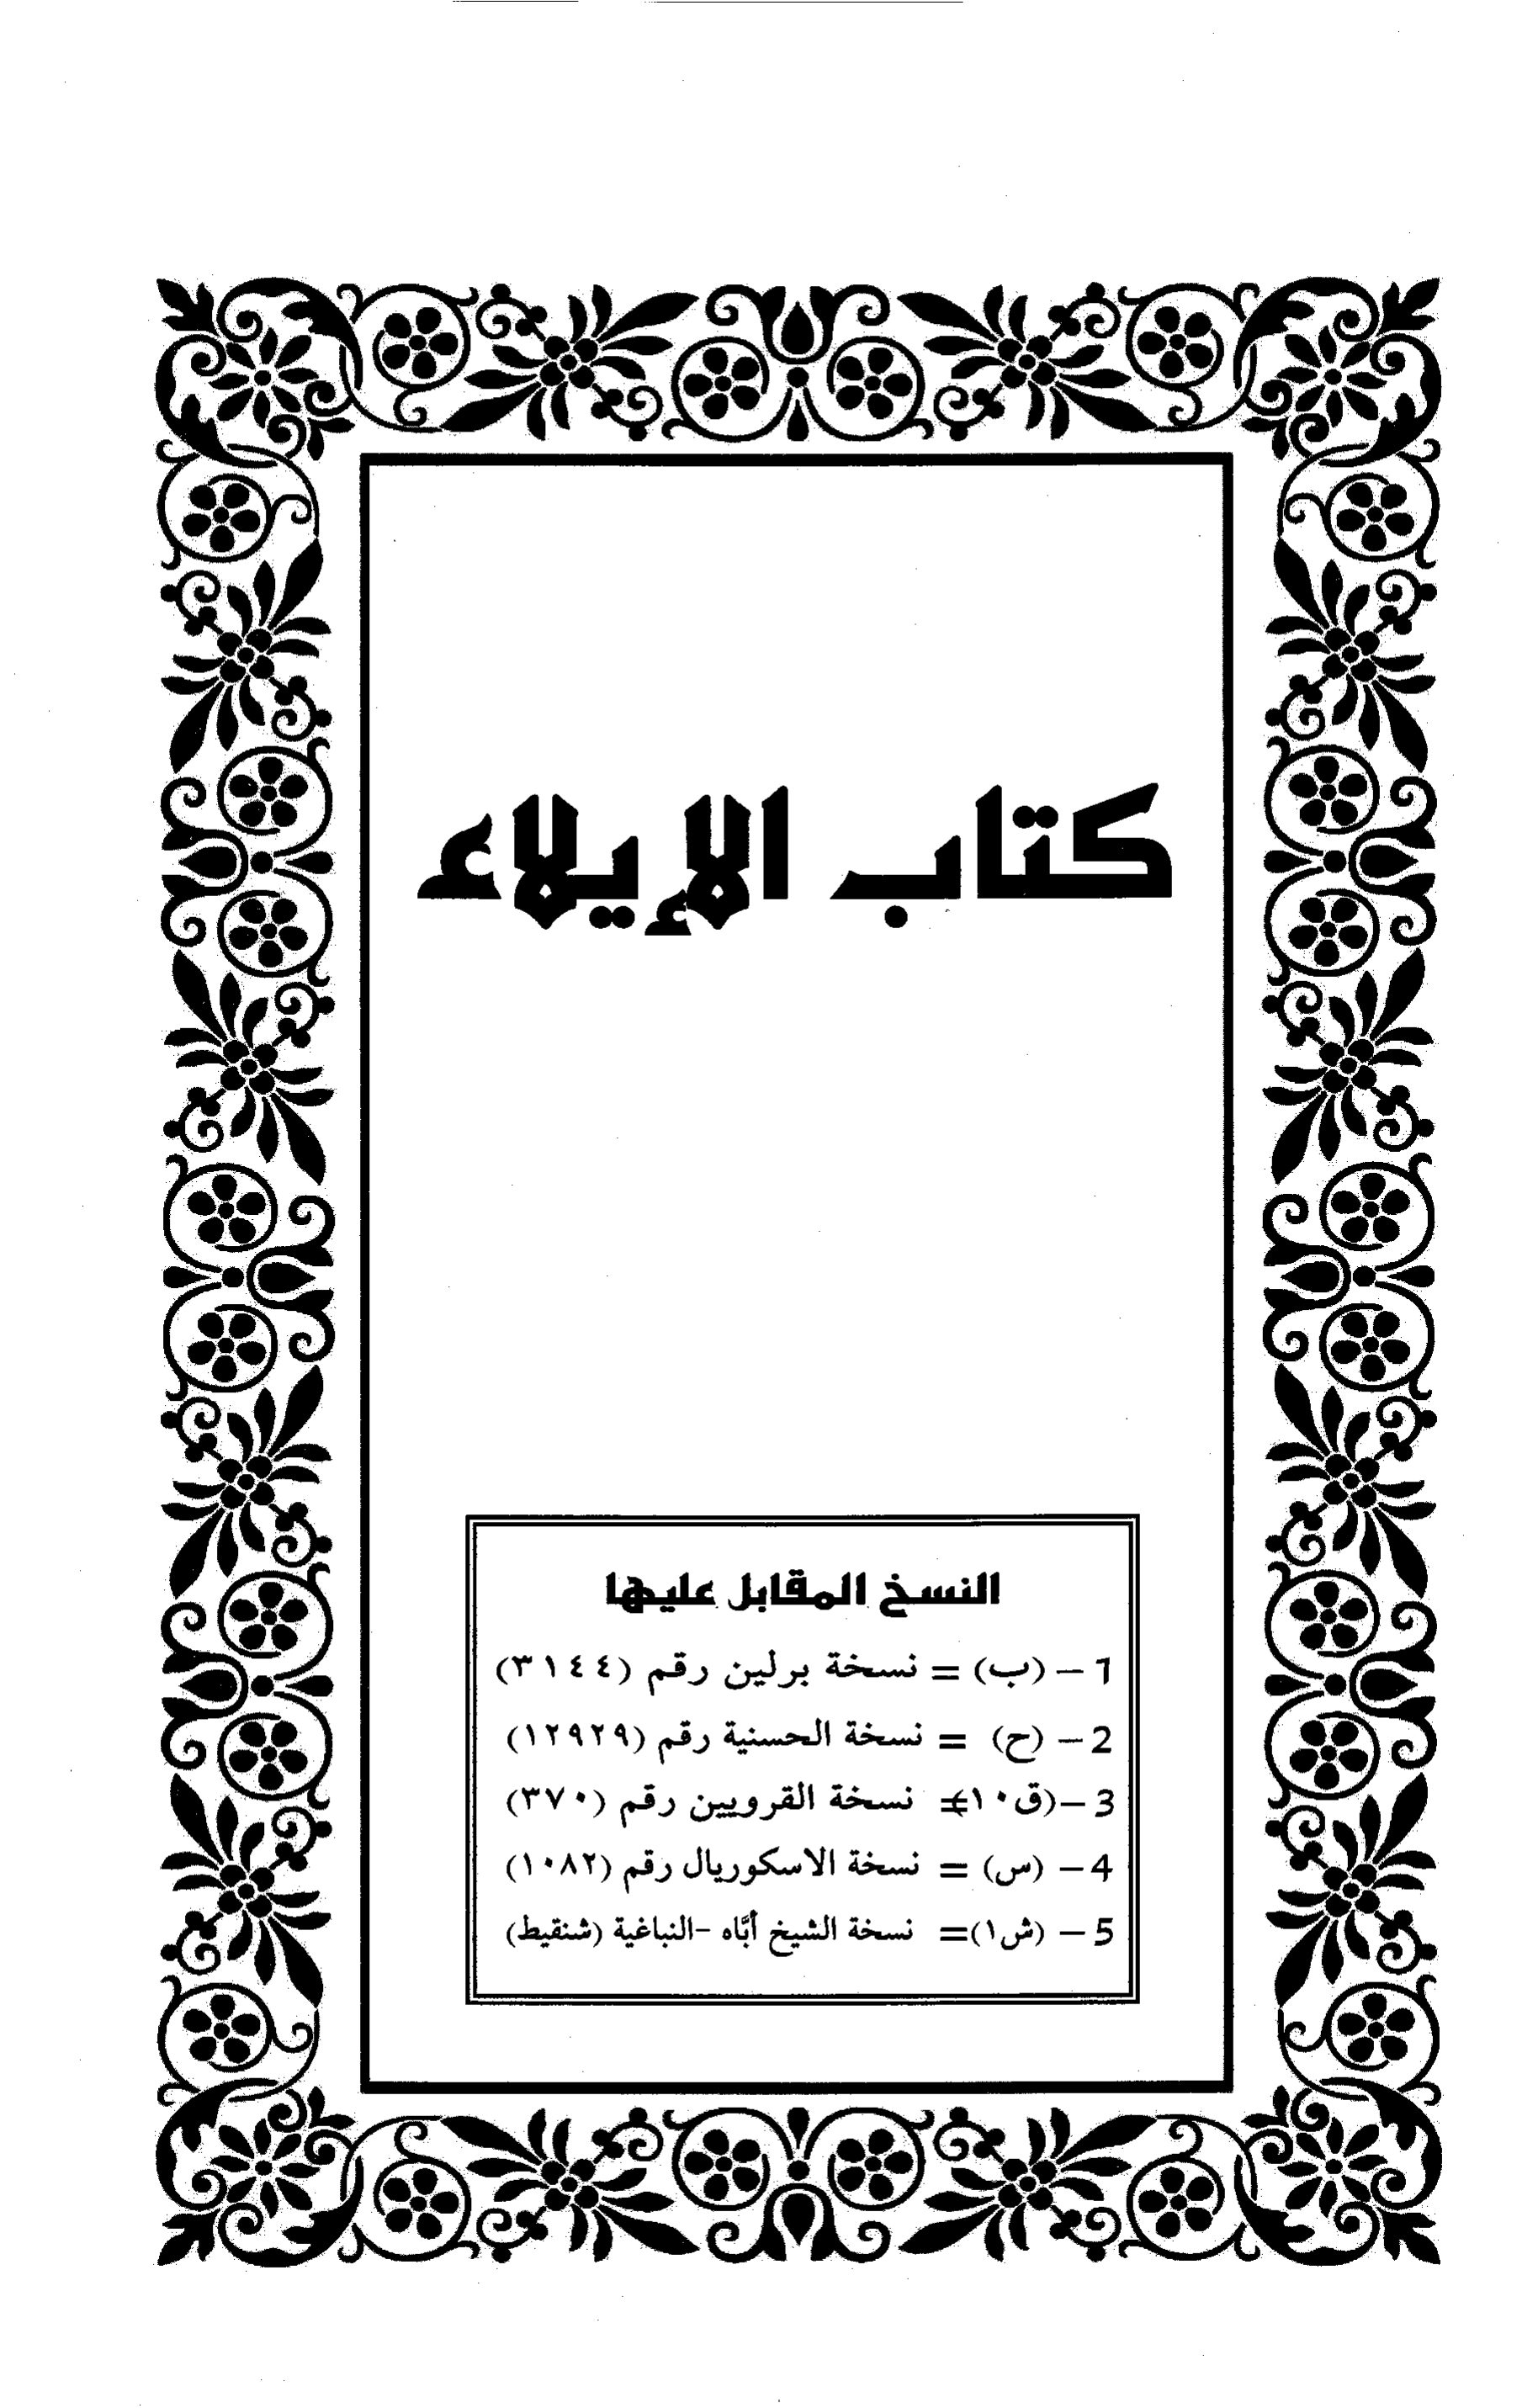 كتاب الإيلاء
النسخ المقابل عليها
1 – (ب) = نسخة برلين رقم (٣١٤٤)
2 – (ح) = نسخة الحسنية رقم (١٢٩٢٩)
3 –(ق١٠)= نسخة القرويين رقم (٣٧٠)
4 – (س) = نسخة الاسكوريال رقم (١٠٨٢)
5 – (ش١)= نسخة الشيخ أبَّاه -النباغية (شنقيط)